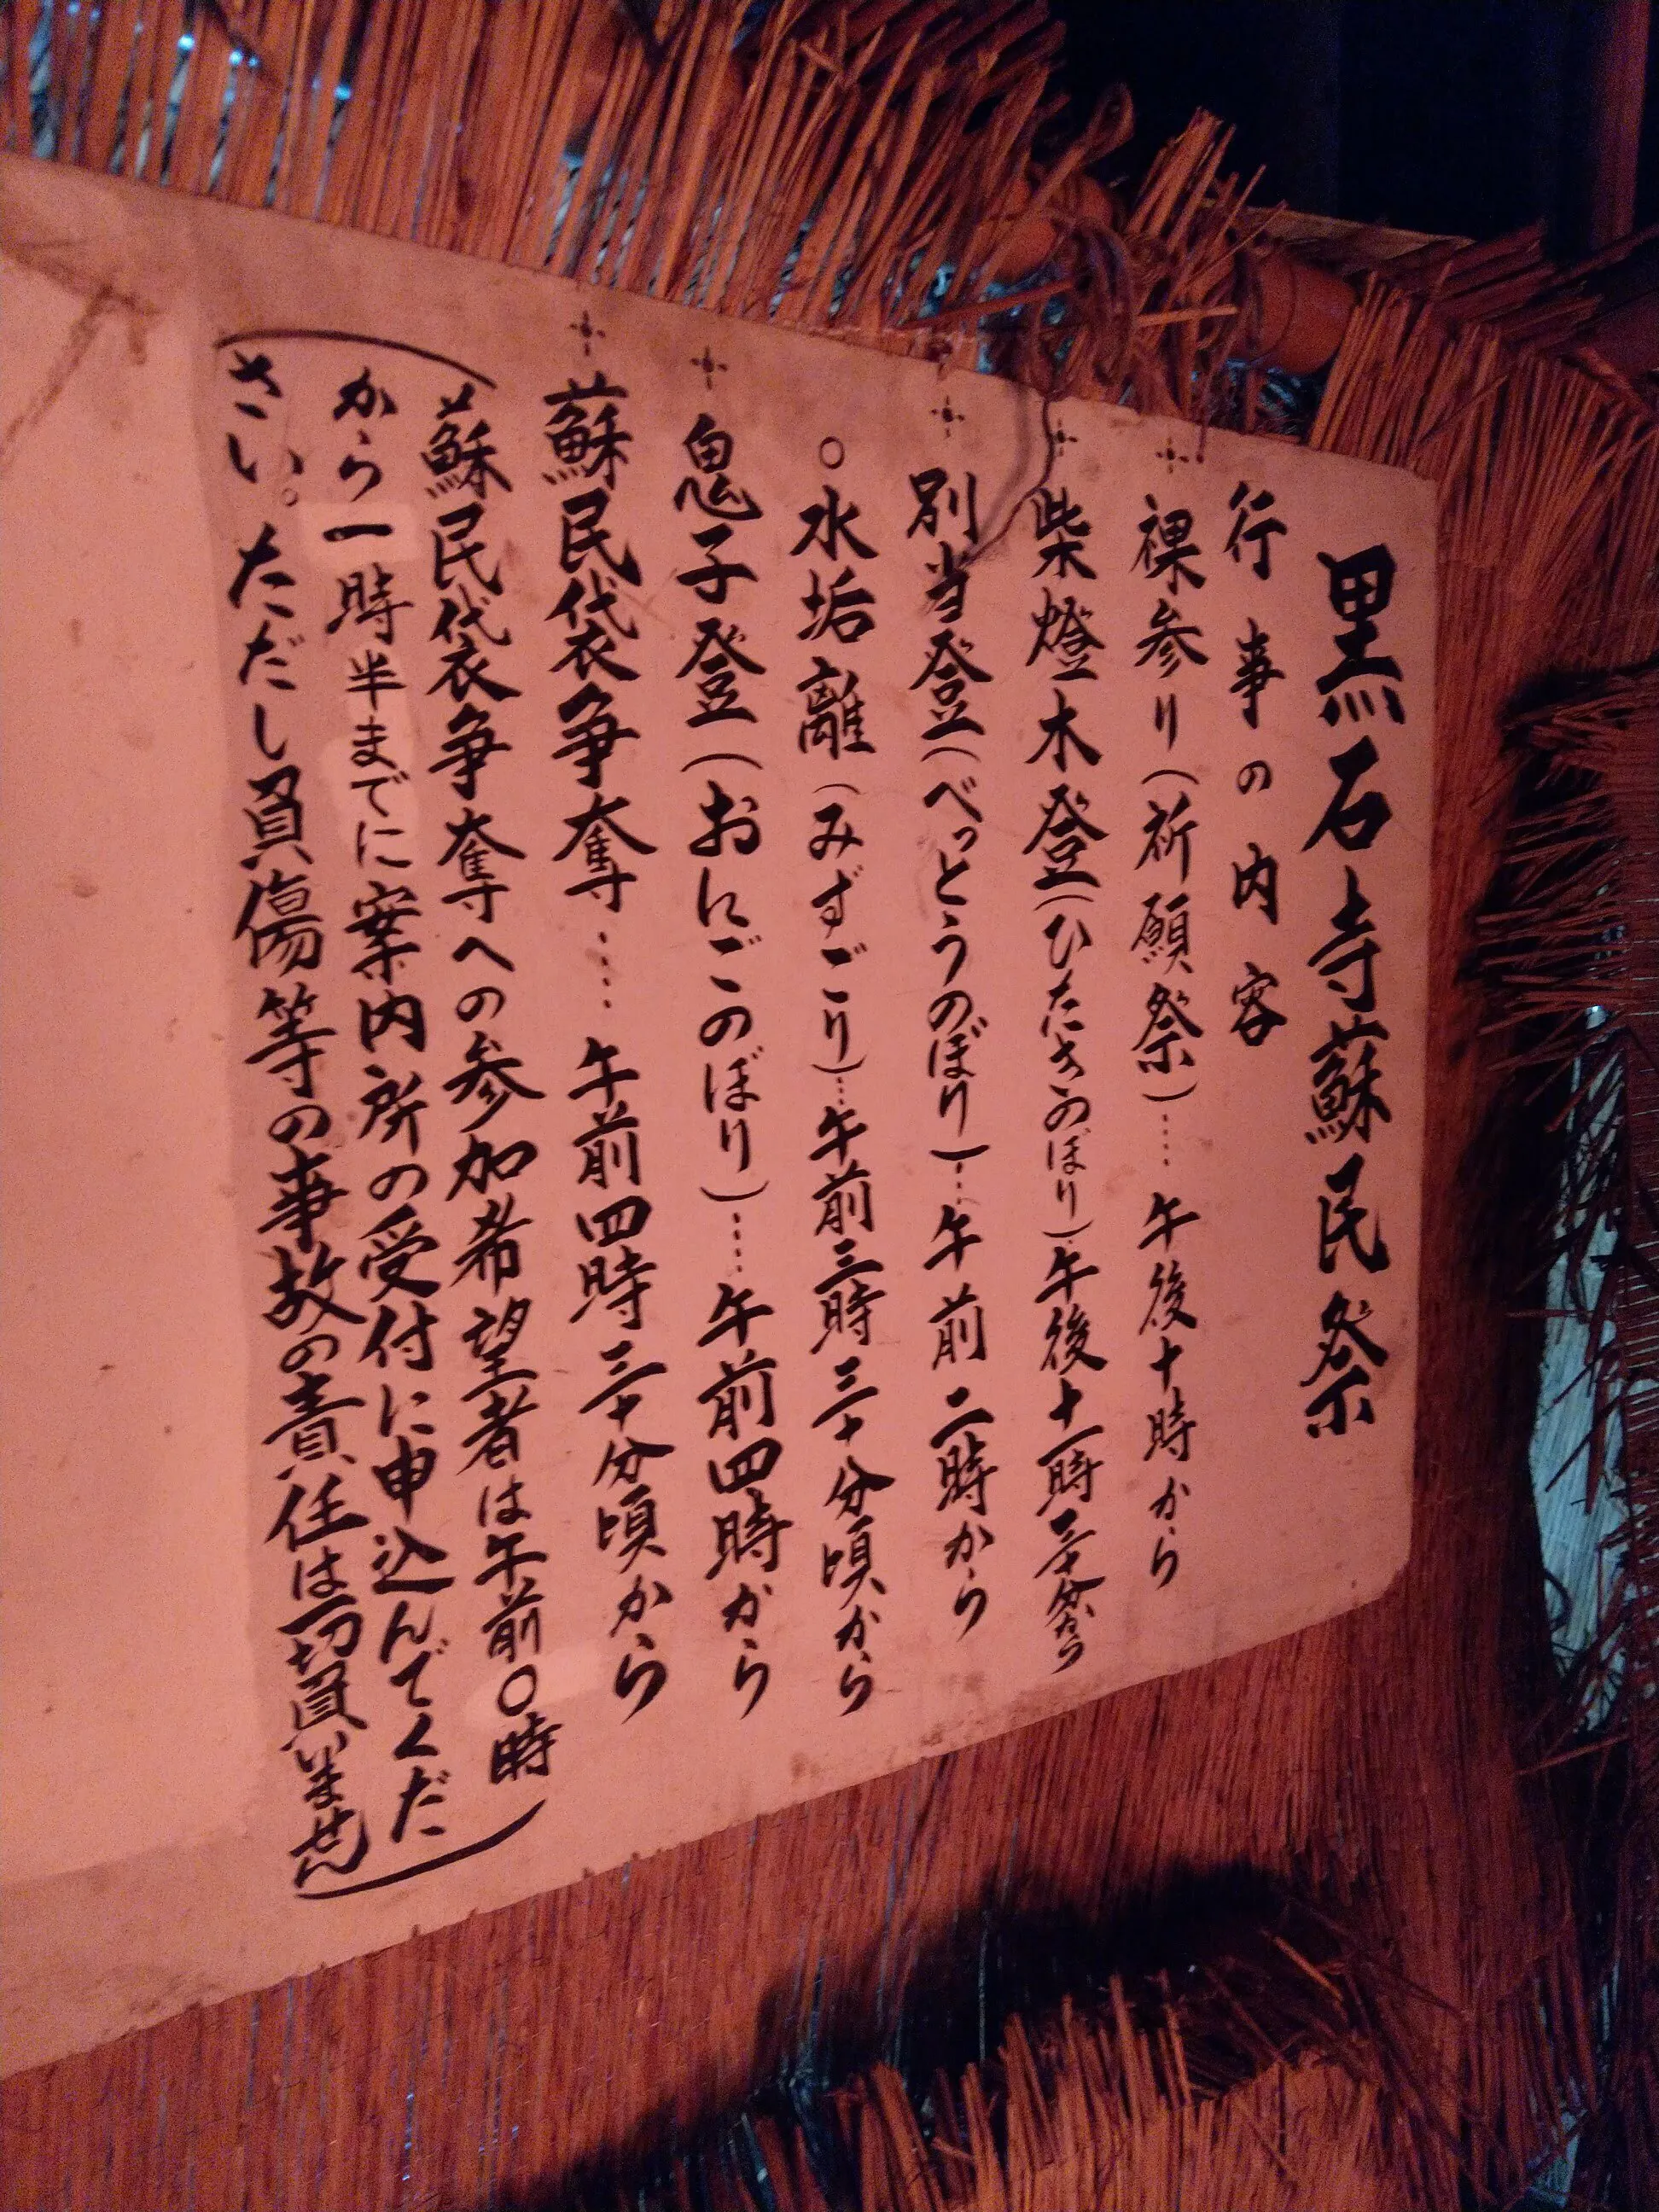 黒石寺蘇民祭
行事の内容
裸参り(祈願祭)…午後十時から
柴燈木登(ひたきのぼり)午後十一時三十分から
別当登(べっとうのぼり)…午前二時から
○水垢離(みずごり)…午前三時三十分頃から
鬼子登(おにごのぼり)…午前四時から
蘇民袋争奪……午前四時三十分頃から
(蘇民袋争奪への参加希望者は午前〇時
から一時半までに案内所の受付に申込んでくだ
さい。ただし負傷等の事故の責任は一切負いません)